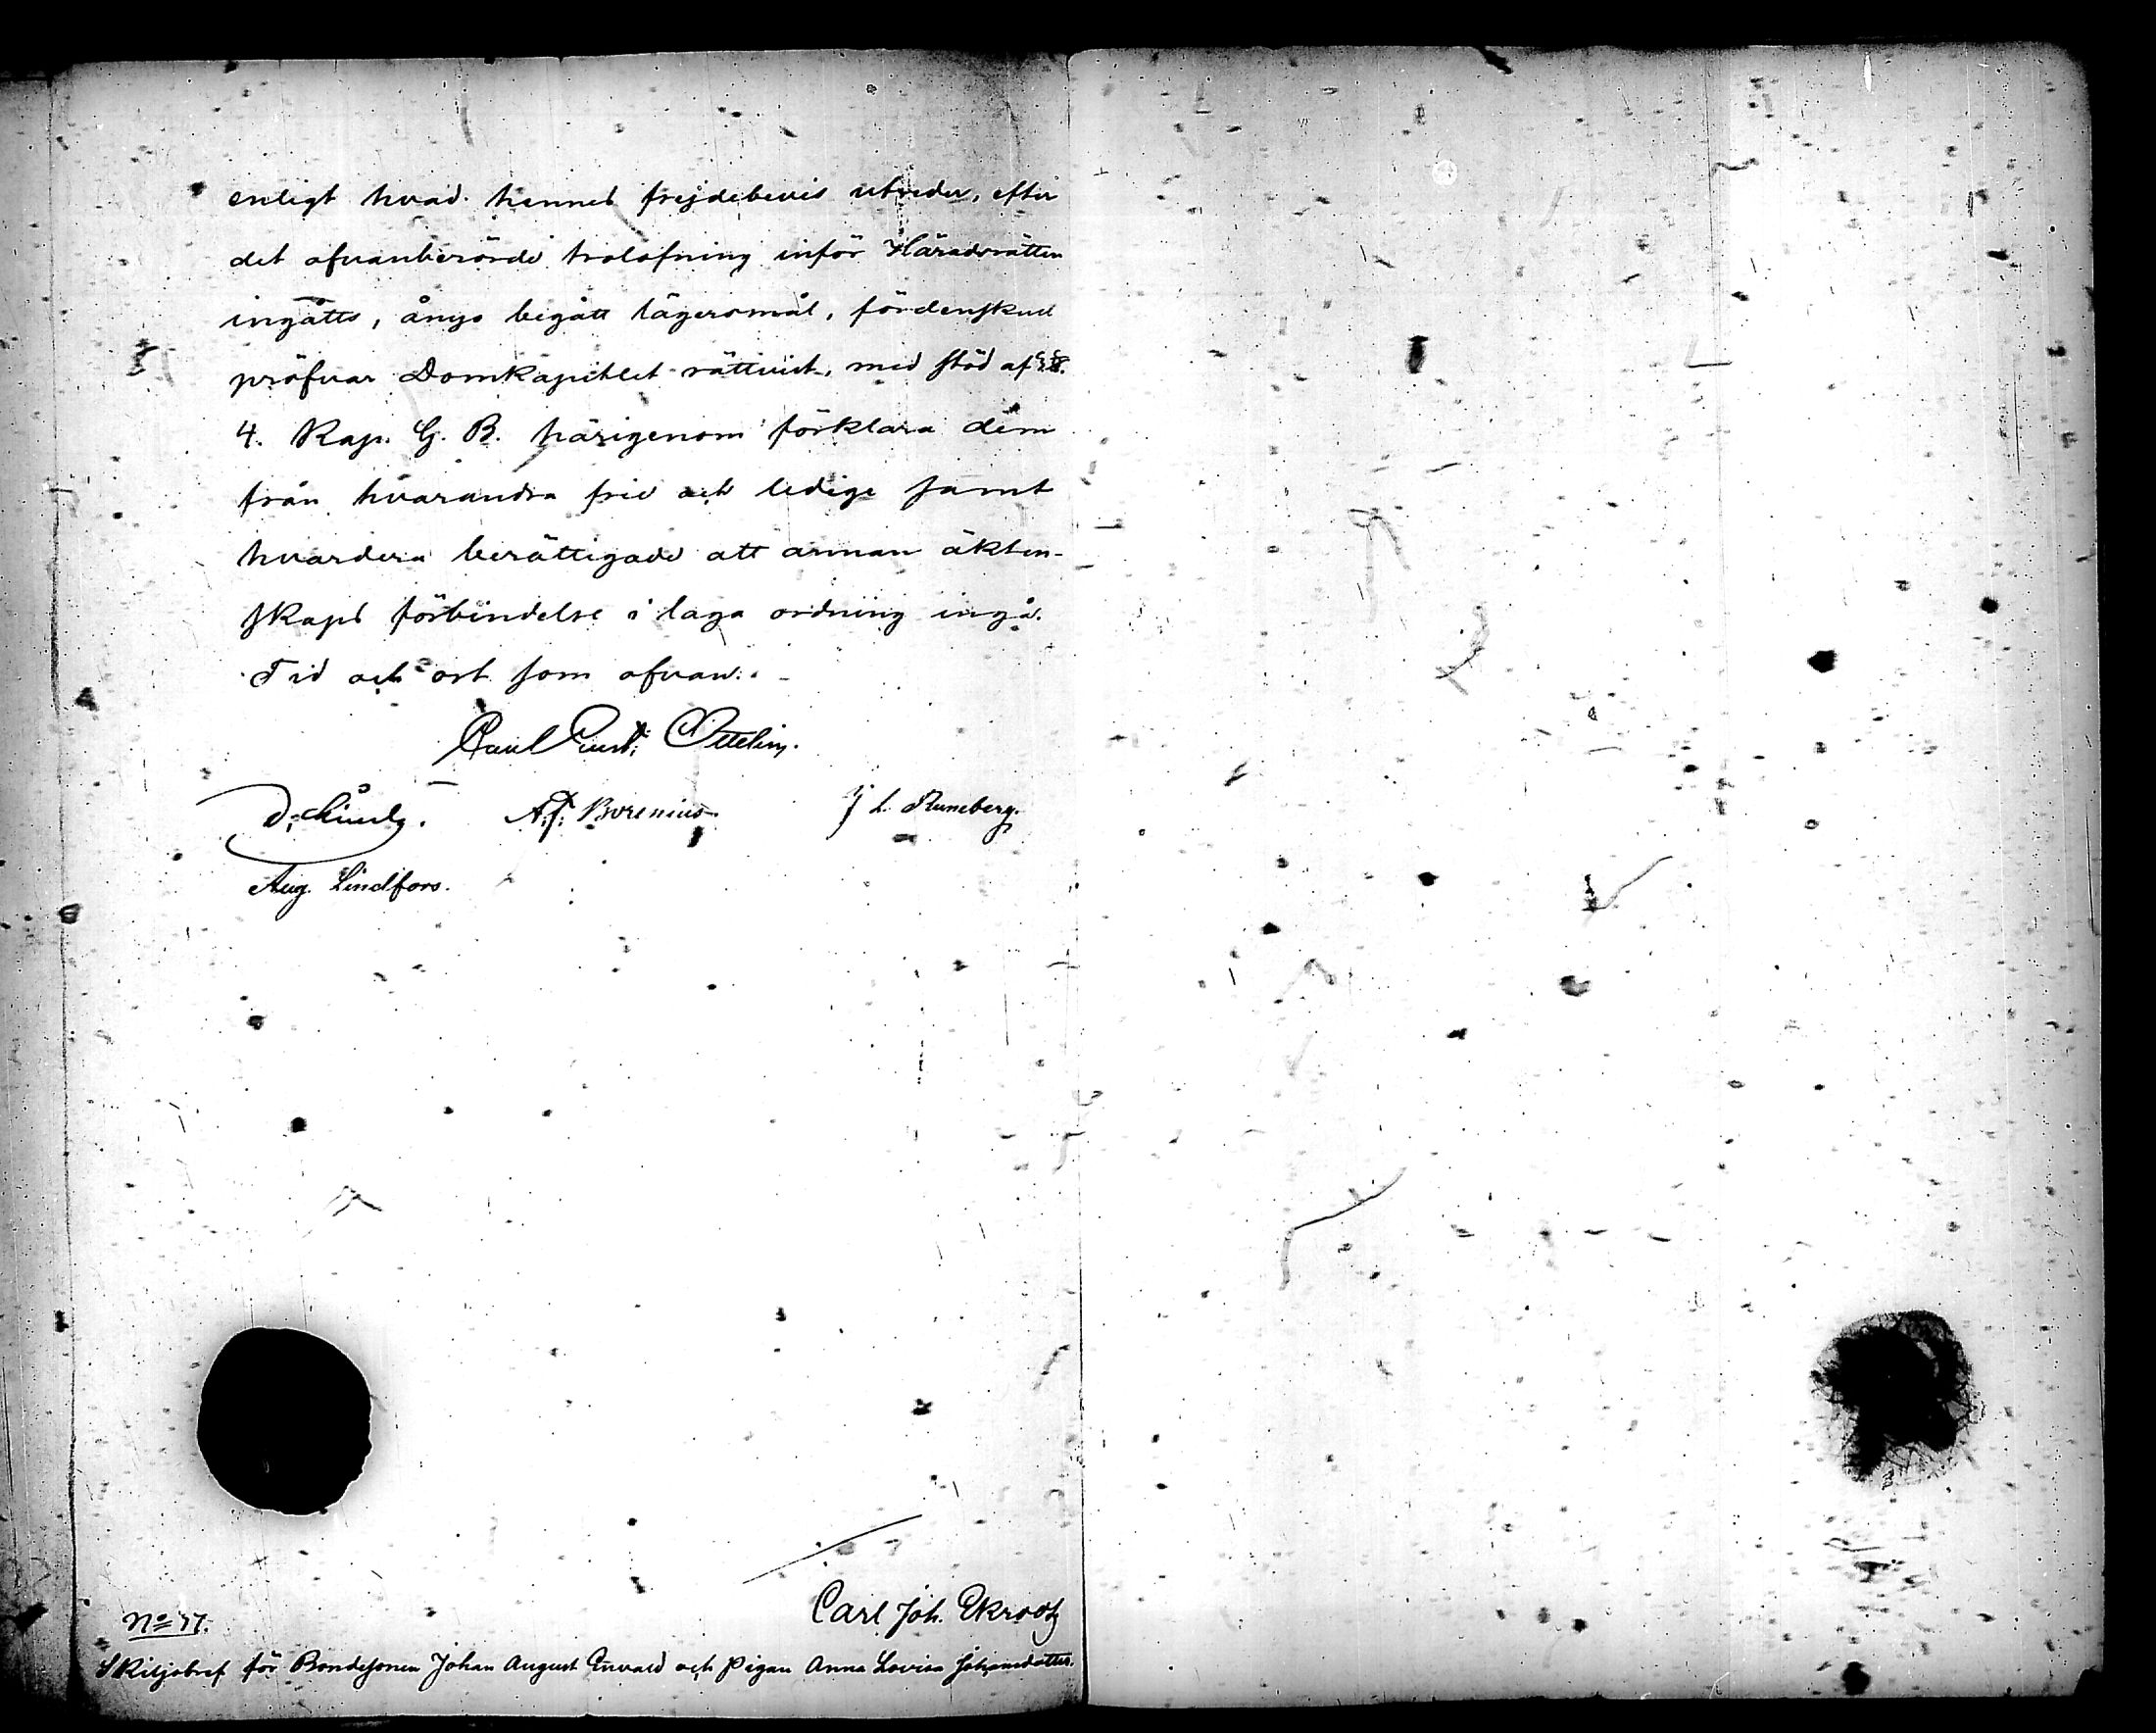 enligt hvad hennes frejdebevis utreder, efter
det ofvanberörde trolofning inför Häradsrätten
ingåtts, ånyo begått lägersmål, fördenskull
pröfvar Domkapitlet rättvist, med stöd af §
4. Kap. G. B. härigenom förklara dem
från hvarandra frie och ledige samt
hvardera berättigade att annan äkten-
skaps förbindelse i laga ordning ingå.
Tid och ort som ofvan.
Carl Gust. Ottelin.
A. F. Borenius J. L. Runeberg.
Aug. Lindfors.
Carl Joh. Ekroos
No 77.
Skiljobref för Bondesonen Johan August Envald och Pigan Anna Lovisa Johansdotter.